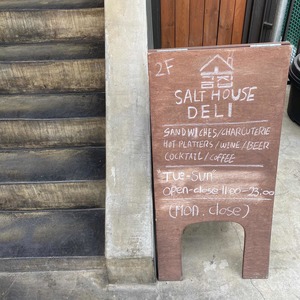 2F
SALT HOUSE
DELI
SANDWICHES/CHARCUTERIE
HOT PLATTERS/WINE/BEER
COCKTAIL/COFFEE
Tue-Sun
open-close 11:00-23:00
(Mon. close)